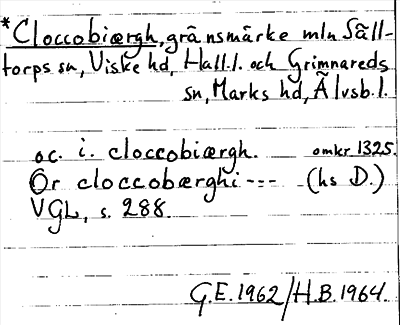 *Cloccobiærgh, gränsmärke mln Säll-
torps sn, Viske hd, Hall.l. och Grimnareds
sn, Marks hd, Älvsb.l.
oc. i. cloccobiærgh. omkr 1325.
Or cloccobærghi --- (hs D.)
VGL, s. 288.
G.E. 1962/H.B. 1964.